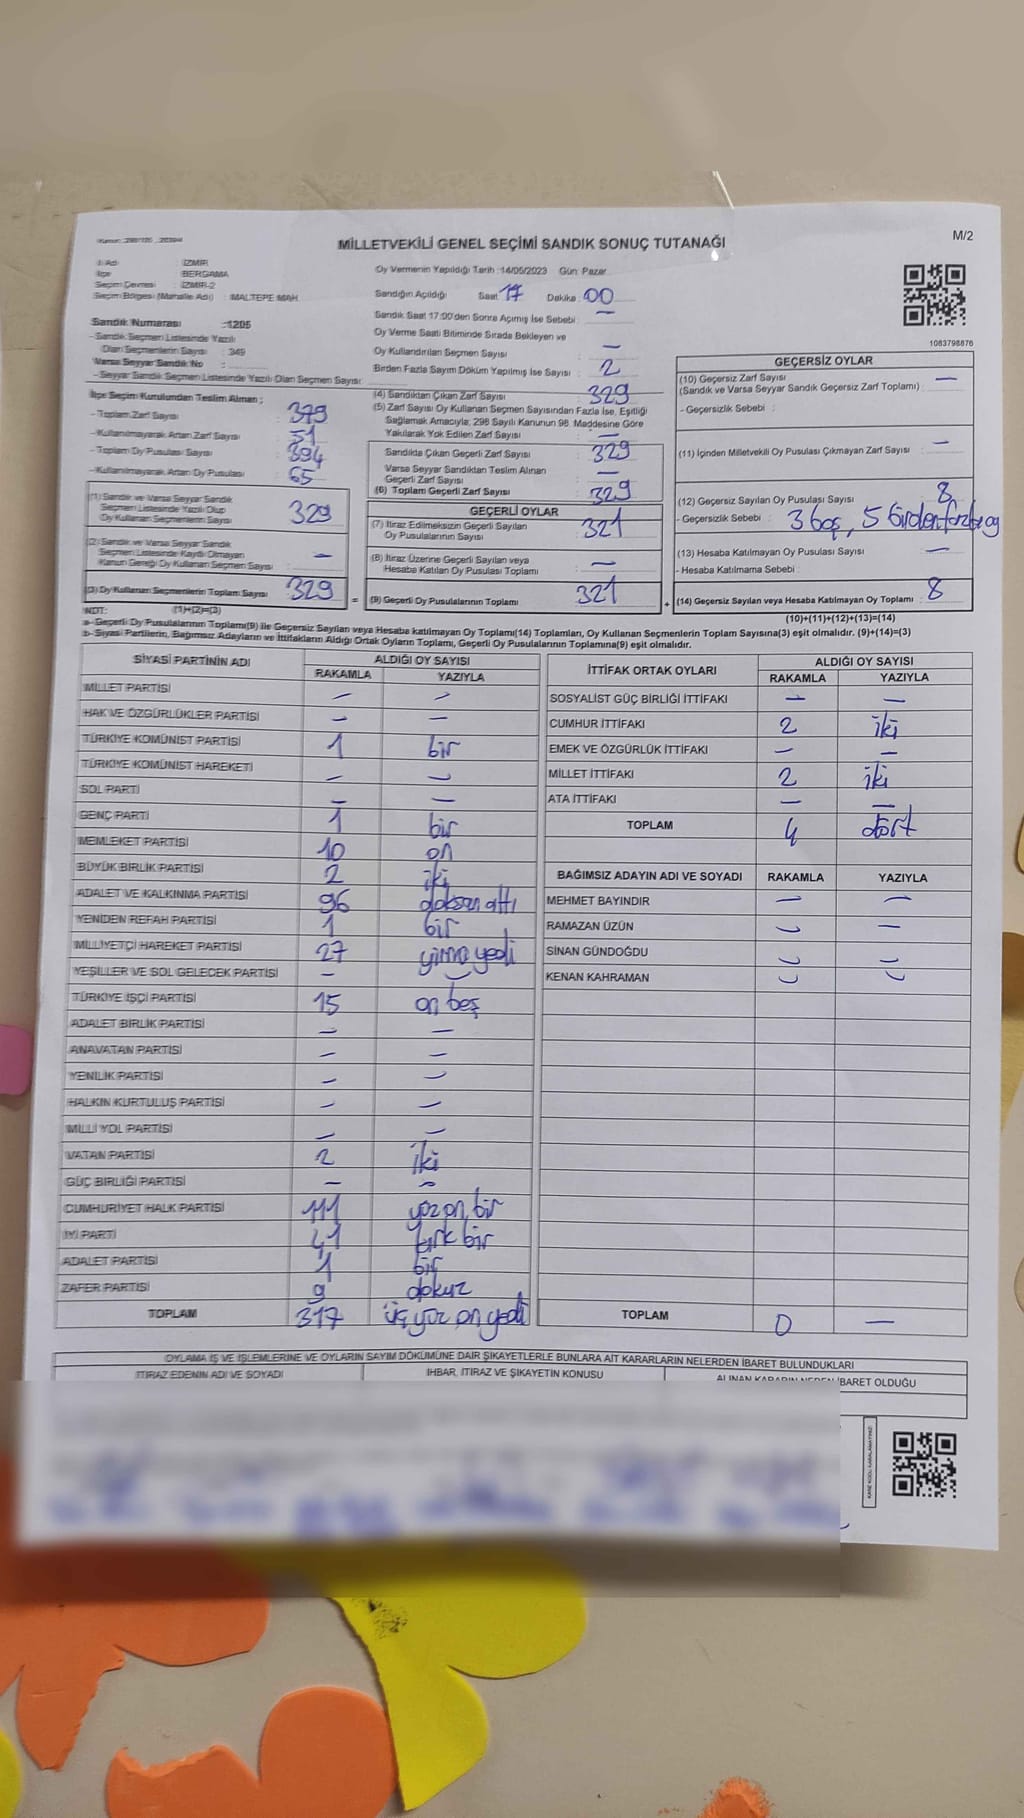 M/2
MİLLETVEKİLİ GENEL SEÇİMİ SANDIK SONUÇ TUTANAĞI
İl Adı : İZMİR
İlçe : BERGAMA
Seçim Çevresi : İZMİR-2
Seçim Bölgesi (Mahalle Adı) : MALTEPE MAH.
Oy Vermenin Yapıldığı Tarih :14/05/2023 Gün: Pazar
Sandığın Açıldığı Saat 17 Dakika 00
Sandık Saat 17:00'den Sonra Açımış İse Sebebi : —
Oy Verme Saati Bitiminde Sırada Bekleyen ve
Oy Kullandırılan Seçmen Sayısı —
Birden Fazla Sayım Döküm Yapılmış İse Sayısı : 2
Sandık Numarası :1205
- Sandık Seçmen Listesinde Yazılı
Olan Seçmenlerin Sayısı : 349
Varsa Seyyar Sandık No :
- Seyyar Sandık Seçmen Listesinde Yazılı Olan Seçmen Sayısı :
İlçe Seçim Kurulundan Teslim Alınan ;
- Toplam Zarf Sayısı : 379
- Kullanılmayarak Artan Zarf Sayısı : 51
- Toplam Oy Pusulası Sayısı : 394
- Kullanılmayarak Artan Oy Pusulası : 65
(1) Sandık ve Varsa Seyyar Sandık
Seçmen Listesinde Yazılı Olup
Oy Kullanan Seçmenlerin Sayısı : 329
(2) Sandık ve Varsa Seyyar Sandık
Seçmen Listesinde Kaydı Olmayan
Kanun Gereği Oy Kullanan Seçmen Sayısı : —
(3) Oy Kullanan Seçmenlerin Toplam Sayısı : 329
(4) Sandıktan Çıkan Zarf Sayısı : 329
(5) Zarf Sayısı Oy Kullanan Seçmen Sayısından Fazla İse, Eşitliği
Sağlamak Amacıyla; 298 Sayılı Kanunun 98. Maddesine Göre
Yakılarak Yok Edilen Zarf Sayısı : —
Sandıkta Çıkan Geçerli Zarf Sayısı : 329
Varsa Seyyar Sandıktan Teslim Alınan
Geçerli Zarf Sayısı : —
(6) Toplam Geçerli Zarf Sayısı : 329
GEÇERLİ OYLAR
(7) İtiraz Edilmeksizin Geçerli Sayılan
Oy Pusulalarının Sayısı : 321
(8) İtiraz Üzerine Geçerli Sayılan veya
Hesaba Katılan Oy Pusulası Toplamı : —
= (9) Geçerli Oy Pusulalarının Toplamı : 321
1083798876
GEÇERSİZ OYLAR
(10) Geçersiz Zarf Sayısı : —
(Sandık ve Varsa Seyyar Sandık Geçersiz Zarf Toplamı)
- Geçersizlik Sebebi :
(11) İçinden Milletvekili Oy Pusulası Çıkmayan Zarf Sayısı : —
(12) Geçersiz Sayılan Oy Pusulası Sayısı : 8
- Geçersizlik Sebebi : 3 boş, 5 birden fazla oy
(13) Hesaba Katılmayan Oy Pusulası Sayısı : —
- Hesaba Katılmama Sebebi :
+ (14) Geçersiz Sayılan veya Hesaba Katılmayan Oy Toplamı : 8
NOT: (1)+(2)=(3) (10)+(11)+(12)+(13)=(14)
a- Geçerli Oy Pusulalarının Toplamı(9) ile Geçersiz Sayılan veya Hesaba katılmayan Oy Toplamı(14) Toplamları, Oy Kullanan Seçmenlerin Toplam Sayısına(3) eşit olmalıdır. (9)+(14)=(3)
b- Siyasi Partilerin, Bağımsız Adayların ve İttifakların Aldığı Ortak Oyların Toplamı, Geçerli Oy Pusulalarının Toplamına(9) eşit olmalıdır.
SİYASİ PARTİNİN ADI ALDIĞI OY SAYISI
RAKAMLA YAZIYLA
MİLLET PARTİSİ — —
HAK VE ÖZGÜRLÜKLER PARTİSİ — —
TÜRKİYE KOMÜNİST PARTİSİ 1 bir
TÜRKİYE KOMÜNİST HAREKETİ — —
SOL PARTİ — —
GENÇ PARTİ 1 bir
MEMLEKET PARTİSİ 10 on
BÜYÜK BİRLİK PARTİSİ 2 iki
ADALET VE KALKINMA PARTİSİ 96 doksan altı
YENİDEN REFAH PARTİSİ 1 bir
MİLLİYETÇİ HAREKET PARTİSİ 27 yirmi yedi
YEŞİLLER VE SOL GELECEK PARTİSİ — —
TÜRKİYE İŞÇİ PARTİSİ 15 on beş
ADALET BİRLİK PARTİSİ — —
ANAVATAN PARTİSİ — —
YENİLİK PARTİSİ — —
HALKIN KURTULUŞ PARTİSİ — —
MİLLİ YOL PARTİSİ — —
VATAN PARTİSİ 2 iki
GÜÇ BİRLİĞİ PARTİSİ — —
CUMHURİYET HALK PARTİSİ 111 yüz on bir
İYİ PARTİ 41 kırk bir
ADALET PARTİSİ 1 bir
ZAFER PARTİSİ 9 dokuz
TOPLAM 317 üç yüz on yedi
İTTİFAK ORTAK OYLARI ALDIĞI OY SAYISI
RAKAMLA YAZIYLA
SOSYALİST GÜÇ BİRLİĞİ İTTİFAKI — —
CUMHUR İTTİFAKI 2 iki
EMEK VE ÖZGÜRLÜK İTTİFAKI — —
MİLLET İTTİFAKI 2 iki
ATA İTTİFAKI — —
TOPLAM 4 dört
BAĞIMSIZ ADAYIN ADI VE SOYADI RAKAMLA YAZIYLA
MEHMET BAYINDIR — —
RAMAZAN ÜZÜN — —
SİNAN GÜNDOĞDU — —
KENAN KAHRAMAN — —
TOPLAM 0 —
OYLAMA İŞ VE İŞLEMLERİNE VE OYLARIN SAYIM DÖKÜMÜNE DAİR ŞİKAYETLERLE BUNLARA AİT KARARLARIN NELERDEN İBARET BULUNDUKLARI
İTİRAZ EDENİN ADI VE SOYADI İHBAR, İTİRAZ VE ŞİKAYETİN KONUSU ALINAN KARARIN NEDEN İBARET OLDUĞU
KARE KODU KARALAMAYINIZ!